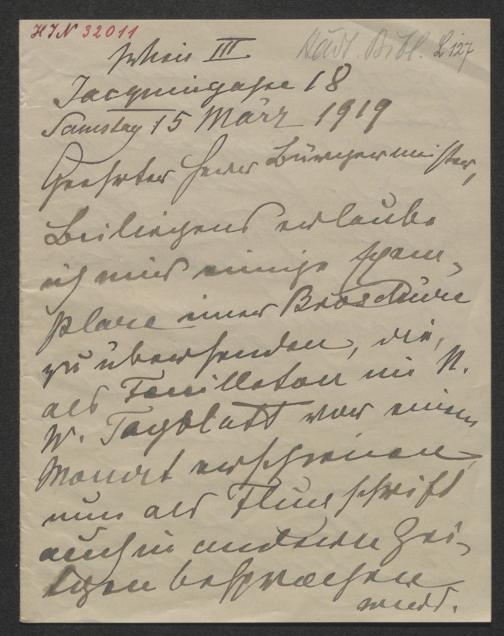 HIN 32011
Städt. Bibl. L 127
Wien III
Jacquingasse 18
Samstag 15 März 1919
Geehrter Herr Bürgermeister,
Beiliegend erlaube
ich mir einige Exem-
plare einer Broschüre
zu übersenden, die,
als Feuilleton im N.
W. Tagblatt vor einem
Monat erschienen,
nun als Flugschrift
auch in anderen Zei-
tungen besprochen
wird.